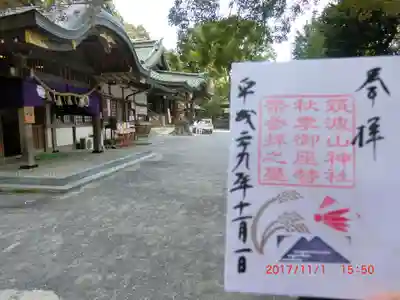 奉拝
筑波山神社
秋季御座替
祭参拝之星
平成二十九年十一月一日
2017/11/1 15:50